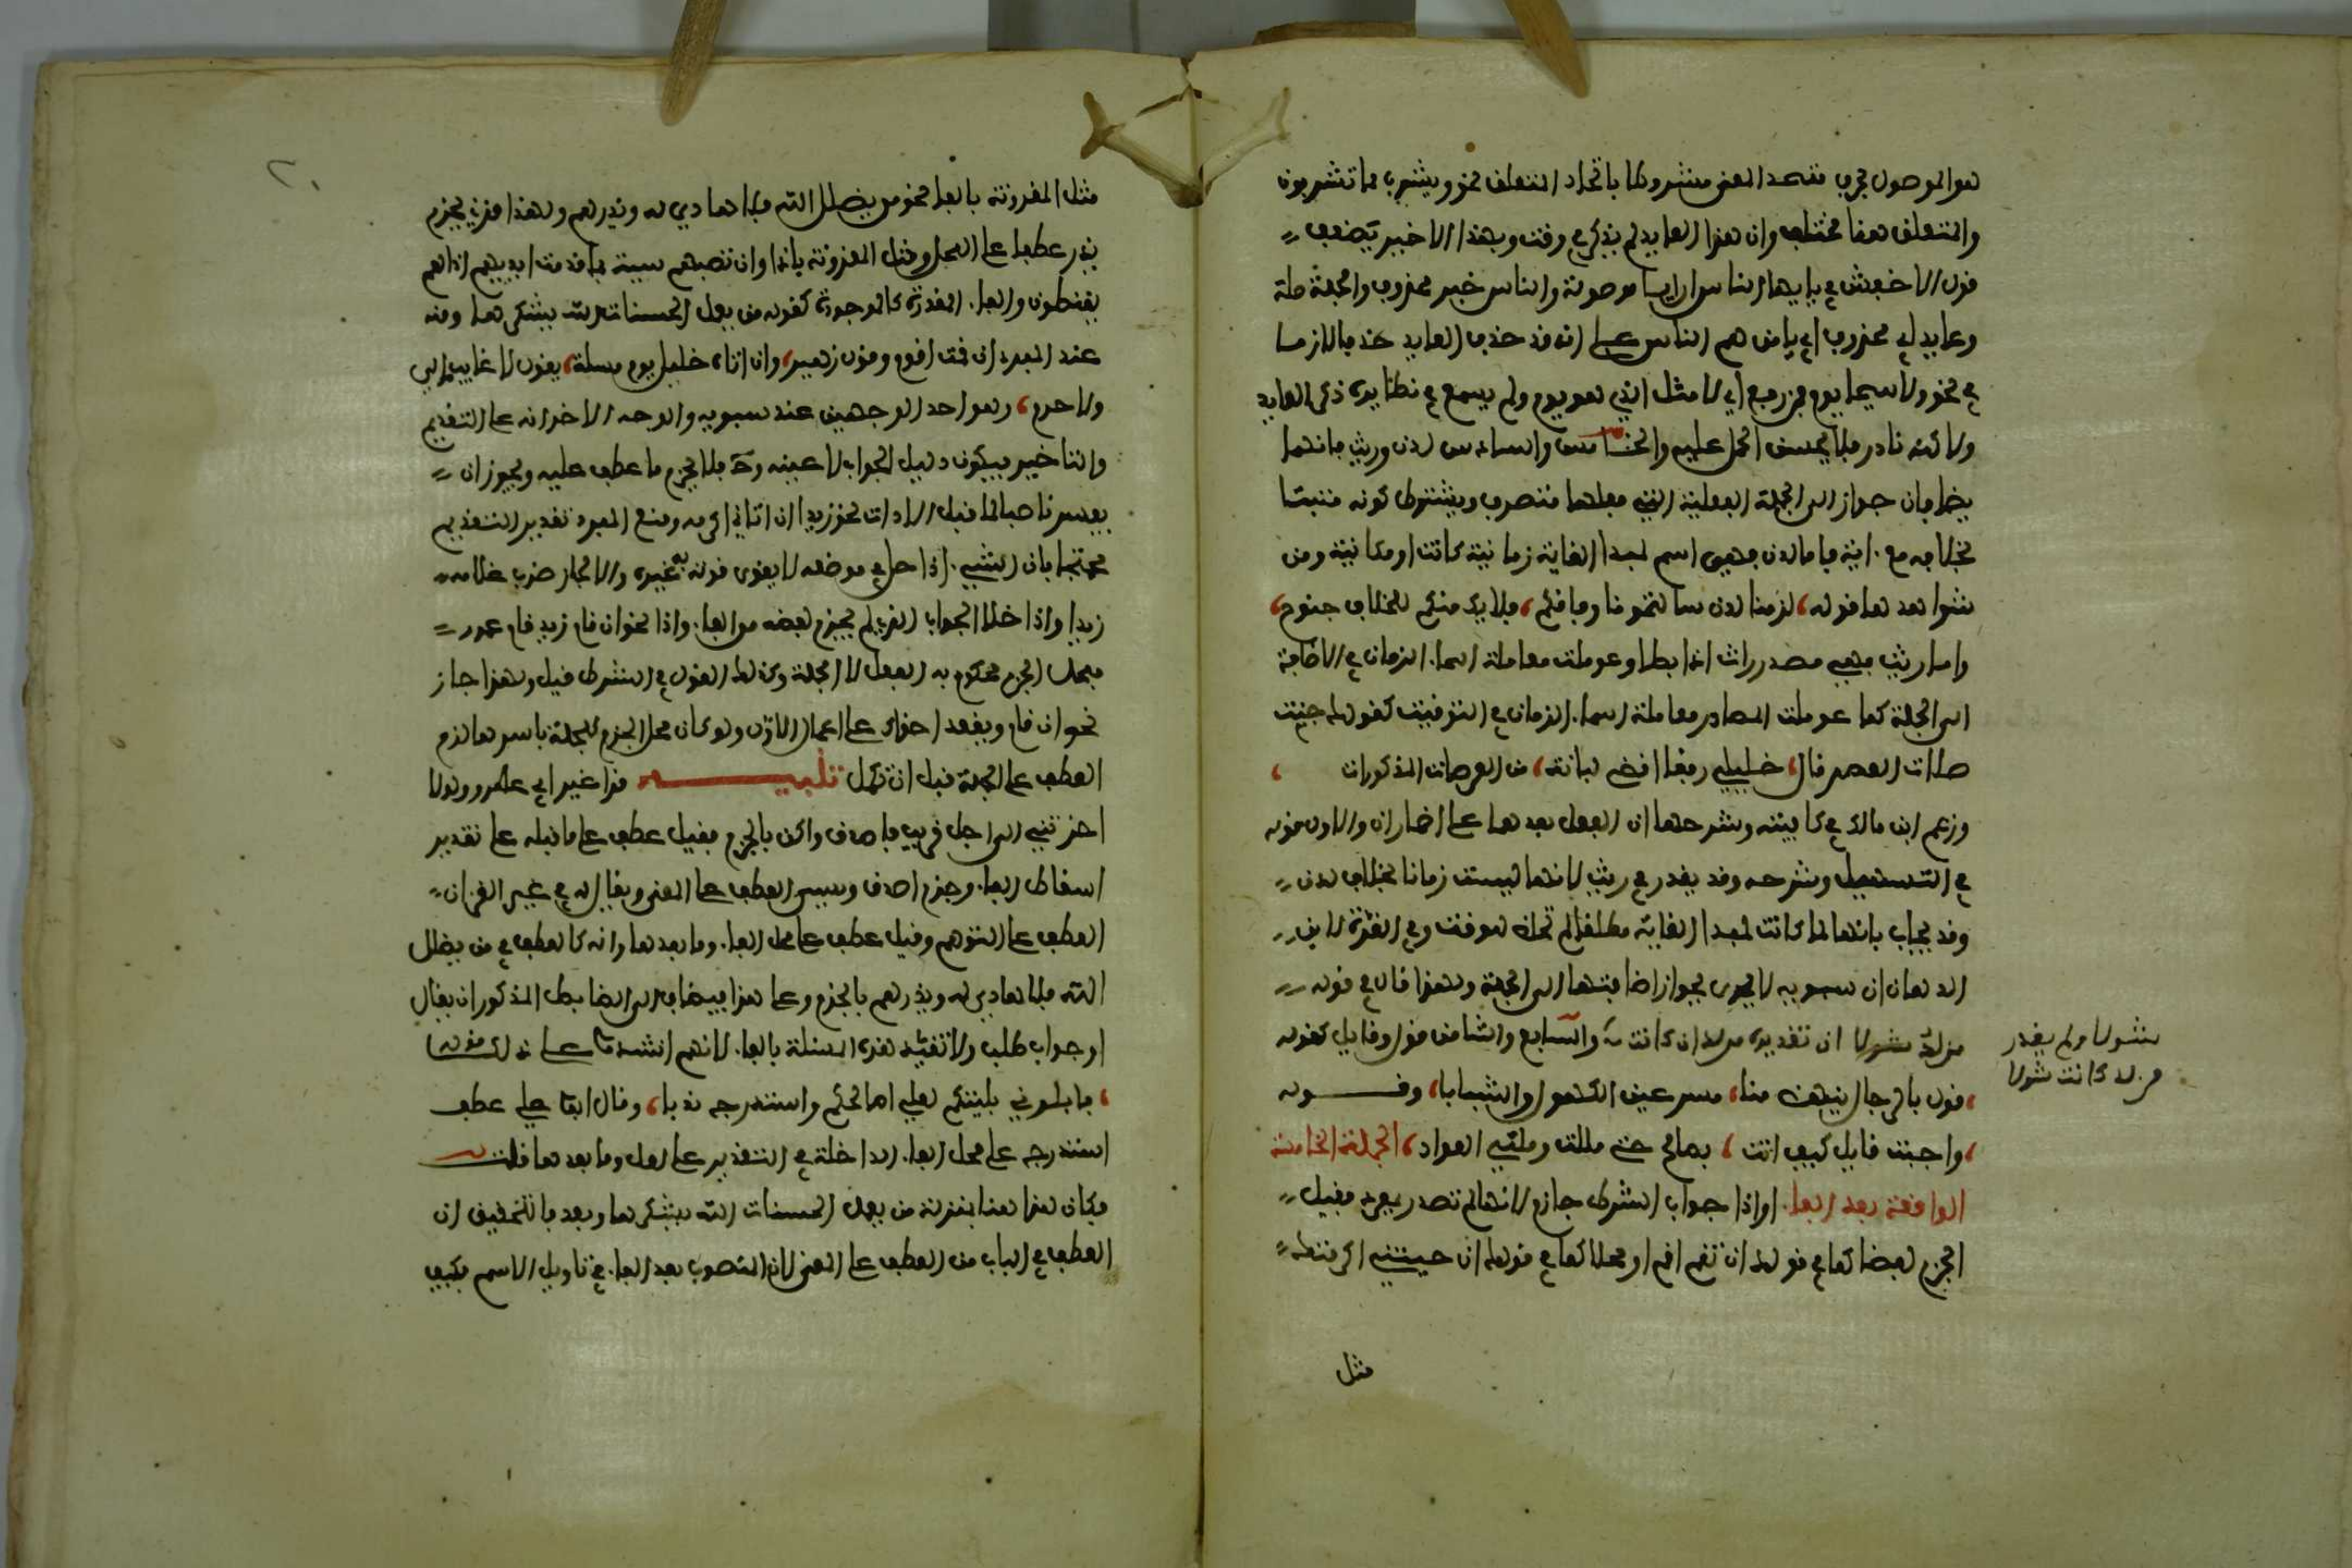 هو الموصول بحرف متحد المعنى مشروط باتحاد المتعلق نحو ويشرب مما تشربون
والمتعلق هنا مختلف وان هذا العايد لم يذكر في وقت وبهذا الاخير يضعف
قول الاخفش في يا ايها الناس ان ايا موصولة والناس خبر لمحذوف والجملة صلة
وعايد اي محذوف اي يا من هم الناس على انه قد حذف العايد حذفا لازما
في نحو ولا سيما يوم فيمن رفع اي لا مثل الذي هو يوم ولم يسمع في نظايره ذكر العايد
ولاكنه نادر فلا يحسن الحمل عليه والخامس والسادس لدن وريث فانهما
يضافان جوازا الى الجملة الفعلية التي فعلها متصرف ويشترط كونه مثبتا
بخلافه مع اية فاما لدن فهي اسم لمبدا الغاية زمانية كانت او مكانية ومن
شواهدها قوله لزمنا لدن سالتمونا وفاقكم فلا يك منكم للخلاف جنوح
واما ريث فهي مصدر راث اذا ابطا وعوملت معاملة اسماء الزمان في الاضافة
الى الجملة كما عوملت المصادر معاملة اسماء الزمان في التوقيت كقولك جئت
صلاة العصر قال خليلي رفقا اقض لبانة من العرصات المذكرات
وزعم ابن مالك في كافيته وشرحها ان الفعل بعدهما على اضمار ان والاول قوله
في التسهيل وشرحه وقد يعذر في ريث لانها ليست زمانا بخلاف لدن
وقد يجاب بانها لما كانت لمبدا الغاية مطلقا لم تخلص للوقت وفي الغرة لابن
الدهان ان سيبويه لا يجوز جواز اضافتها الى الجملة ولهذا قال في قوله
من لد شولا ان تقديره من لد ان كانت شولا ولم يقدر من لد كانت شولا والسابع والثامن قول وقايل كقوله
قول يا للرجال ينهض منا مسرعين الكهول والشبابا وقوله
واجبت قايل كيف انت بصالح حتى مللت وملني العواد الجملة الخامسة
الواقعة بعد الفاء او اذا جواب الشرط جازم لانها لم تصدر بمفرد يقبل
الجزم لفظا كما في قولك ان تقم اقم او محلا كما في قولك ان جيتني اكرمتك
مثل
مثال المقرونة بالفاء نحو من يضلل الله فلا هادي له ويذرهم ولهذا قرئ بجزم
يذر عطفا على المحل ومثال المقرونة باذا وان تصبهم سيئة بما قدمت ايديهم اذا هم
يقنطون والفاء المقدرة كالموجودة كقوله من يفعل الحسنات الله يشكرها ومنه
عند المبرد ان قمت اقوم وقول زهير وان اتاه خليل يوم مسئلة يقول لا غايب مالي
ولا حرم وهو احد الوجهين عند سيبويه والوجه الاخر انه على التقديم
والتاخير فيكون دليل الجواب لا عينه وح فلا يجزم ما عطف عليه ويجوز ان
يفسر ناصبا لما قبل الاداة نحو زيدا ان اتاني اكرمه ومنع المبرد تقدير التقديم
محتجا بان الشيء اذا حل في موضعه لا ينوى به غيره والا لجاز ضرب غلامه
زيدا واذا خلا الجواب الذي لم يجزم لفظه من الفاء واذا نحو ان قام زيد قام عمرو
فمحل الجزم محكوم به للفعل لا للجملة وكذلك القول في الشرط قيل ولهذا جاز
نحو ان قام ويقعد اخواك على اعمال الاول ولو كان محل الجزم للجملة باسرها لزم
العطف على الجملة قبل ان تكمل تنبيه قرا غير ابي عمرو ولولا
اخرتني الى اجل قريب فاصدق واكن بالجزم فقيل عطف على ما قبله على تقدير
اسقاط الفاء وجزم اصدق ويسمى العطف على المعنى ويقال له في غير القران
العطف على التوهم وقيل عطف على محل الفاء وما بعدها وانه كالعطف في من يضلل
الله فلا هادي له ويذرهم بالجزم وعلى هذا فيضاف الى الضابط المذكور ان يقال
او جواب طلب ولا تقيد هذه المسئلة بالفاء لانهم انشدوا على ذلك قوله
فابلوني بليتكم لعلي اصالحكم واستدرج نويا وقال ابو علي عطف
استدرج على محل الفاء الداخلة في التقدير على لعل وما بعدها قلت
فكان هذا هنا بمنزلة من يفعل الحسنات الله يشكرها وبعد فالتحقيق ان
العطف في الباب من العطف على المعنى لان المنصوب بعد الفاء في تاويل الاسم فكيف